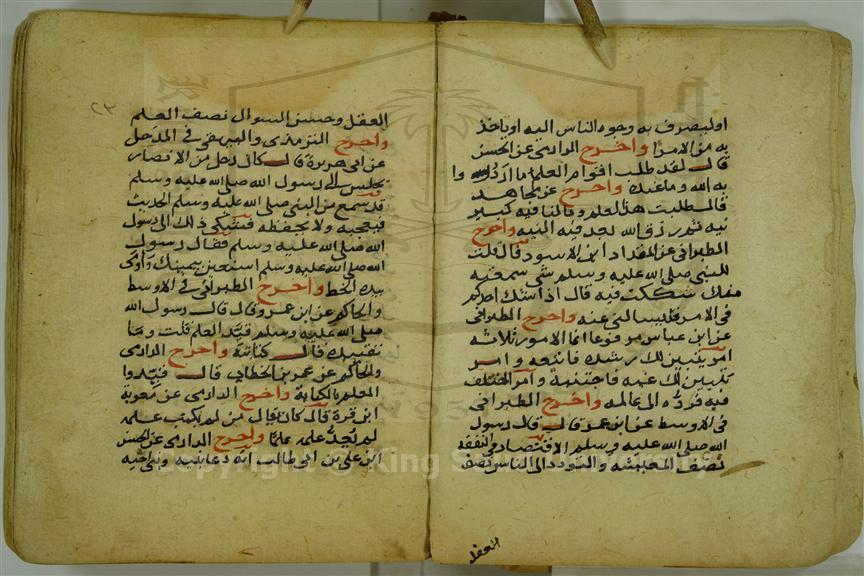 اوليصرف به وجوه الناس اليه او ياخذ
به من الامرا واخرج الدارمي عن الحسن
قال لقد طلب اقوام العلم ما ارادوا
به الله وما عنده واخرج عن مجاهد
قال طلبت هذا العلم ومالنا فيه كبير
نيه ثم رزق الله بعد فيه النيه واخرج
الطبراني عن المقداد ابن الاسود قال قلت
للنبي صلى الله عليه وسلم شي سمعته
منك شككت فيه قال اذا شك احدكم
في الامر فليسالني عنه واخرج الطبراني
عن ابن عباس مرفوعا انما الامور ثلاثه
امر يتبين لك رشده فاتبعه وامر
تبين لك غيه فاجتنبه وامر اختلف
فيه فرده الى عالمه واخرج الطبراني
في الاوسط عن ابن عمر قال قال رسول
الله صلى الله عليه وسلم الاقتصاد في النفقه
نصف المعيشه والتودد الى الناس نصف
العقل
٢٣
العقل وحسن السوال نصف العلم
واخرج الترمذي والبيهقي في المدخل
عن ابي هريرة قال كان رجل من الانصار
يجلس الى رسول الله صلى الله عليه وسلم
فيسمع من النبي صلى الله عليه وسلم الحديث
فيعجبه ولا يحفظه فشكى ذلك الى رسول
الله صلى الله عليه وسلم فقال رسول
الله صلى الله عليه وسلم استعن بيمينك واومى
بيده الخط واخرج الطبراني في الاوسط
والحاكم عن ابن عمرو قال قال رسول الله
صلى الله عليه وسلم قيد العلم قلت وما
تقييده قال كتابته واخرج الدارمي
والحاكم عن عمر بن الخطاب قال قيدوا
العلم بالكتابة واخرج الدارمي عن معوية
ابن قرة قال كان يقال من لم يكتب علمه
لم يعد علمه علما واخرج الدارمي عن الحسن
ابن علي بن ابي طالب انه دعا بنيه وبني اخيه
Copyright © King Saud University